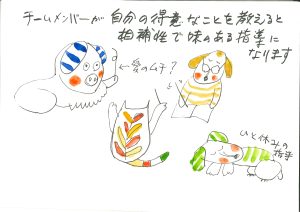 チームメンバーが自分の得意なことを教えると
相補性で味のある指導に
なります
←愛のムチ?
ひと休みの
指導